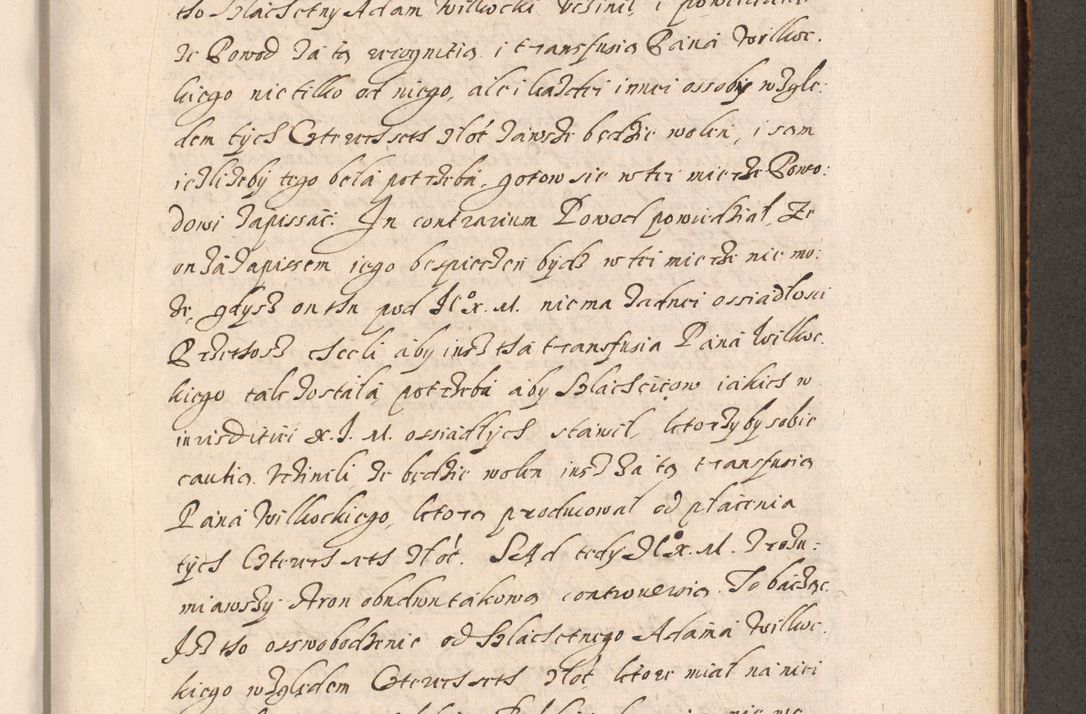 tho Szlachetny Adam Wilkocki Vczinił, i powiedział
że Powod za tą recognitią i transfusią Pana Wilkoc:
kiego nie tilko od niego, ale i każdei innei ossoby wzglę:
dem tych Czterechseth złot zawsze będzie wolen, i sam
ieżliżeby tego beła potrzeba, gotow sie w tei mierze Powo:
dowi zapissać. In contrarium Powod powiedział, Że
on za zapissem iego bespieczen bydz w tei mierze nie mo:
że, gdysz on tżn pod IE°X.M. niema żadnei ossiadłosci
Przethosz chceli aby insz tha transfusia Pana Wilkoc:
kiego tak zostala, potrzeba aby Szlachcicow iakich w
iurisditiei X.I.M. ossiadłych stawil, ktorzyby sobie
cautią vczinili, że będzie wolen insz za tą transfusią
Pana Wilkockiego, ktorą producował od płacenia
tych Czterechseth złot. SĄd tedy IE°X.M. Zrozu:
miawszy stron obudwu takową controuersią. To bacząc
Isz tho osswobodzenie od Szlachetnego Adama Wilkoc:
kiego względem Czterechseth złot, ktore miał na niei